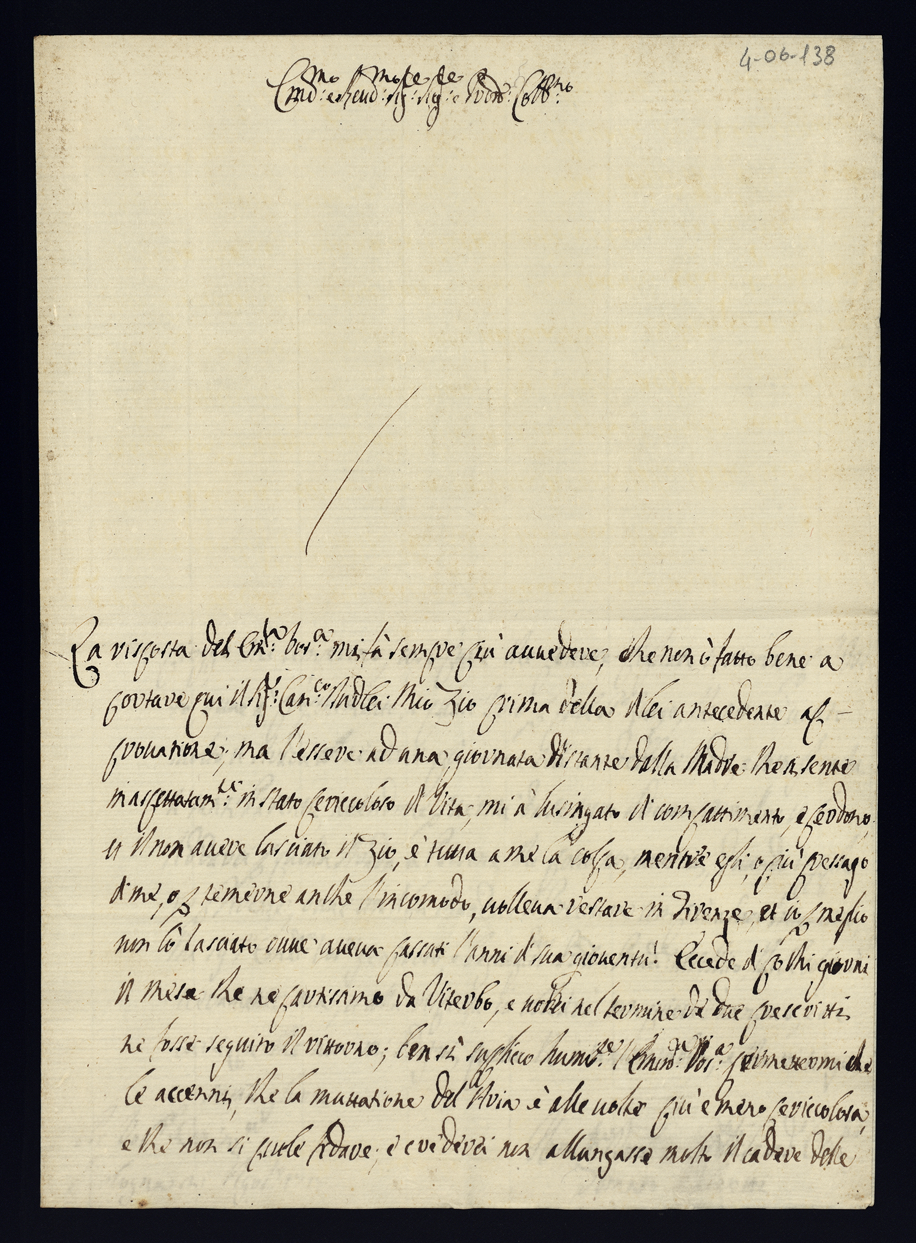 4-06-138
Em.mo e Rend.mo Sig.re Sig.re e Pron Coll.mo
La risposta del Em.a Vos.a mi fà sempre più auuedere, che non ò fatto bene a
portare qui il Sig.r Can.co mio Zio prima della di lei antecedente ap-
prouatione; ma l'essere ad una giornata distante dalla Madre che si sente
inaspettatam.te in stato pericoloso di Vita, mi à lusingato di compatimento, e perdono,
il non auere lasciato il Zio, è tutta a me la colpa, mentre egli, o più presago
di me, o p temerne anche l'incomodo, uoleua restare in Firenze, et io p meglio
non l'ò lasciato oue aueua passati l'anni di sua giouentù! Eccede di pochi giorni
il mese che ne partissimo da Viterbo, e nel termine de due prescritti
ne fosse seguito il ritorno; ben sì suplico humil.te l'Emin.a Vos.a permettermi che
le accenni, che la mutatione dell'Aria è alle uolte più e meno pericolosa,
e che non si puole fidare, e crederei non allungasse molto il cadere delle